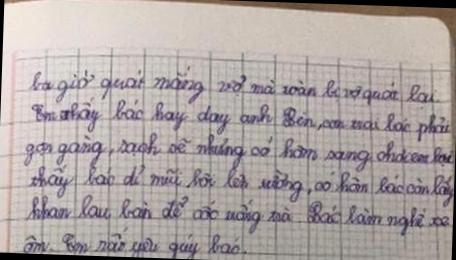 ba giờ quát mắng vợ mà toàn bị vợ quát lại.
Em thấy bác hay dạy anh Bên, con trai bác phải
gọn gàng, sạch sẽ nhưng có hôm sang chơi em lại
thấy bác dí mũi hôi lên tường, có hôm bác còn lấy
khăn lau bàn để cốc uống trà. Bác làm nghề xe
ôm. Em rất yêu quý bác.